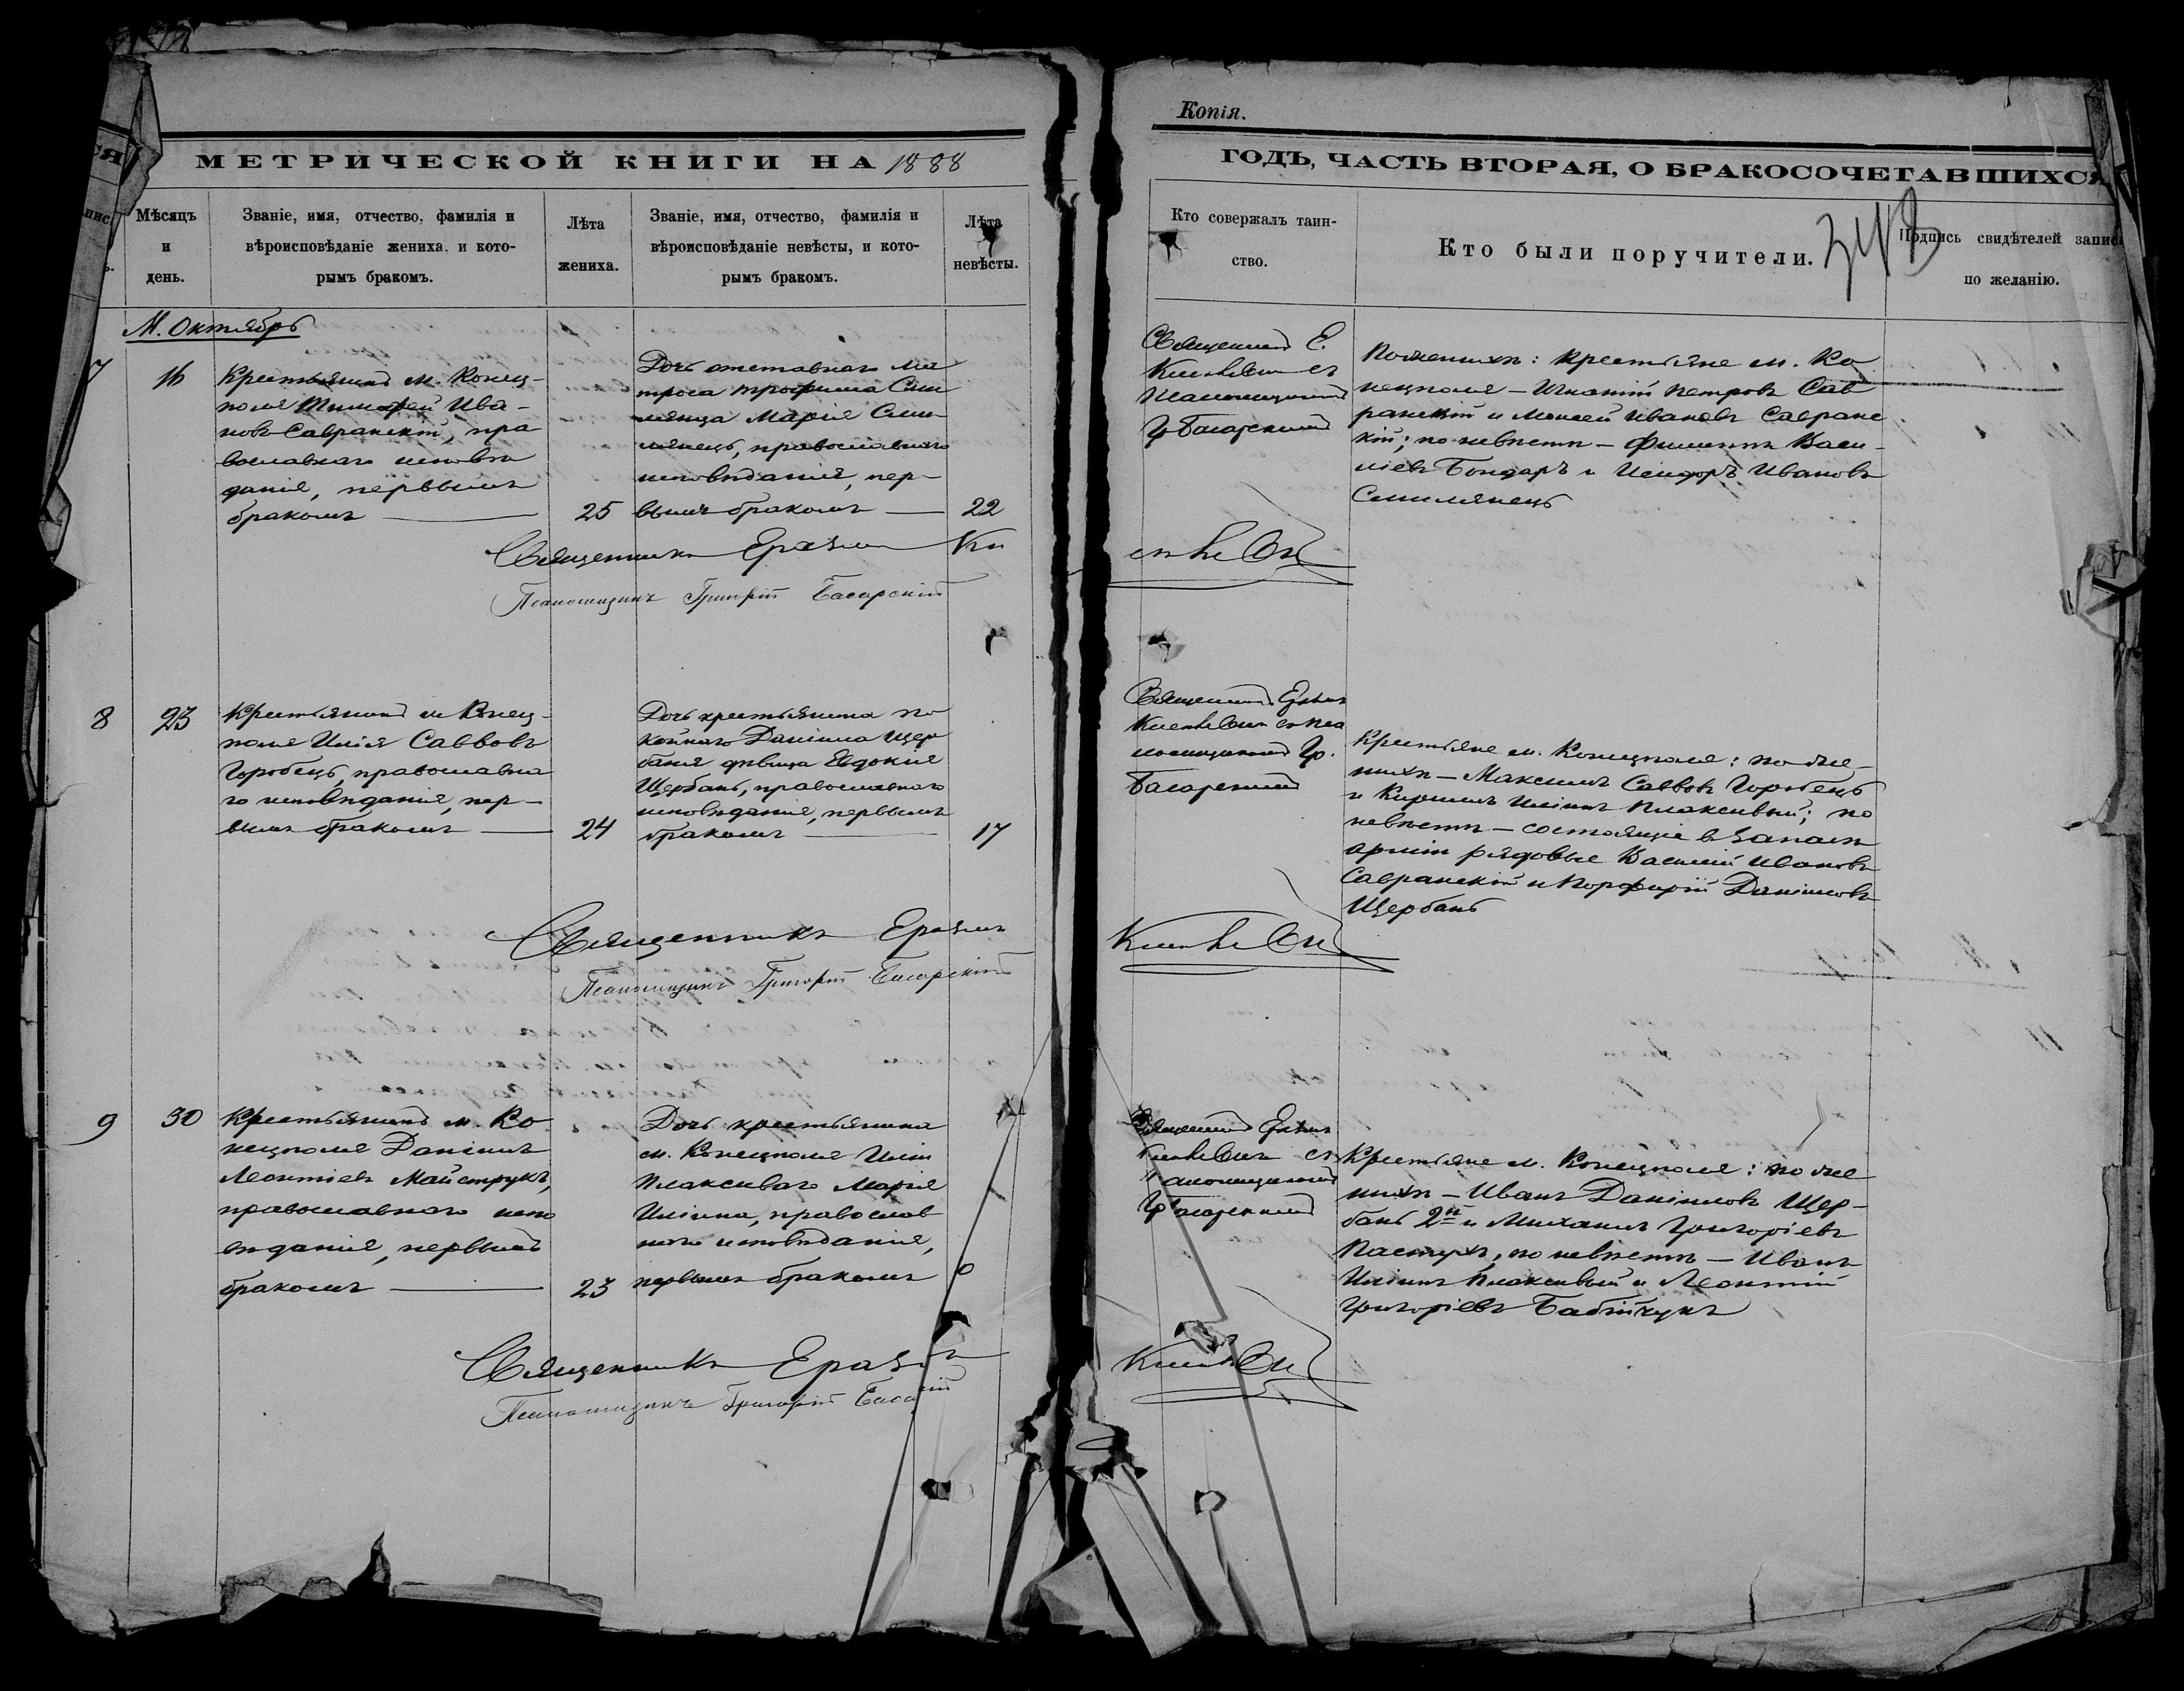 Копія.
МЕТРИЧЕСКОЙ КНИГИ НА 1888
ГОДЪ, ЧАСТЬ ВТОРАЯ, О БРАКОСОЧЕТАВШИХСЯ
Мѣсяцъ
и
день.
Званіе, имя, отчество, фамилія и
вѣроисповѣданіе жениха, и кото-
рымъ бракомъ.
Лѣта
жениха.
Званіе, имя, отчество, фамилія и
вѣроисповѣданіе невѣсты, и кото-
рымъ бракомъ.
Лѣта
невѣсты.
Кто совержалъ таин-
ство.
Кто были поручители.
Подпись свидѣтелей запис
по желанію.
М. Октябрь
7
16
Крестьянинъ м. Конец-
поля Тимофей Ива-
новъ Савранскій, пра
вославнаго исповѣ
данія, первымъ
бракомъ
25
Дочь отставнаго ма
троса Трофима Сми
лянца Марія Сми-
лянецъ, православнаго
исповѣданія, пер-
вымъ бракомъ
22
Священникъ Е.
съ
Псаломщикомъ
Гр Басарскимъ
По женихѣ: крестьяне м. Ко
нецполя – Игнатій Петровъ Сав
ранскій и Моисей Ивановъ Савранс
кій; по невѣстѣ – Филиппъ Васи-
ліевъ Бондарь и Исидоръ Ивановъ
Смилянецъ
Священникъ Еразмъ
Псаломщикъ Григорій Басарскій
8
23
Крестьянинъ м. Конец-
поля Илія Саввовъ
Горобецъ, православна
го исповѣданія, пер-
вымъ бракомъ
24
Дочь крестьянина по
койнаго Даніила Щер
баня дѣвица Евдокія
Щербань, православнаго
исповѣданія, первымъ
бракомъ
17
Священникъ Еразмъ
съ пса
ломщикомъ Гр.
Басарскимъ
Крестьяне м. Конецполя: по же-
нихѣ – Максимъ Саввовъ Горобецъ
и Кириллъ Иліинъ Плаксивый; по
невѣстѣ – состоящіе въ запасѣ
арміи рядовые Василій Ивановъ
Савранскій и Порфирій Даніиловъ
Щербань
Священникъ Еразмъ
Псаломщикъ Григорій Басарскій
9
30
Крестьянинъ м. Ко
нецполя Даніилъ
Леонтіевъ Майструкъ,
православнаго испо
вѣданія, первымъ
бракомъ
23
Дочь крестьянина
м. Конецполя Иліи
Плаксиваго Марія
Иліина, православ
наго исповѣданія,
первымъ бракомъ
Священникъ Еразмъ
съ
Псаломщикомъ
Гр Басарскимъ
Крестьяне м. Конецполя: по же
нихѣ – Иванъ Даніиловъ Щер-
бань 2й и Михаилъ Григоріевъ
Пастухъ, по невѣстѣ – Иванъ
Иліинъ Плаксивый и Леонтій
Григоріевъ Бабійчукъ
Священникъ Еразмъ
Псаломщикъ Григорій